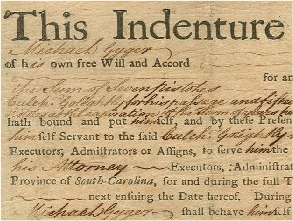 This Indenture
Michael Gyger
of his own free Will and Accord
for an
The Sum of Seven pistoles
Culch: Golightly for his passage and fifteen
hath bound and put himself, and by these Presen
himself Servant to the said Culch: Golightly
Executors, Administrators or Assigns, to serve him
his Attorney Executors, Administrat
Province of South-Carolina, for and during the full T
next ensuing the Date hereof. During
Michael Gyger shall behave himself